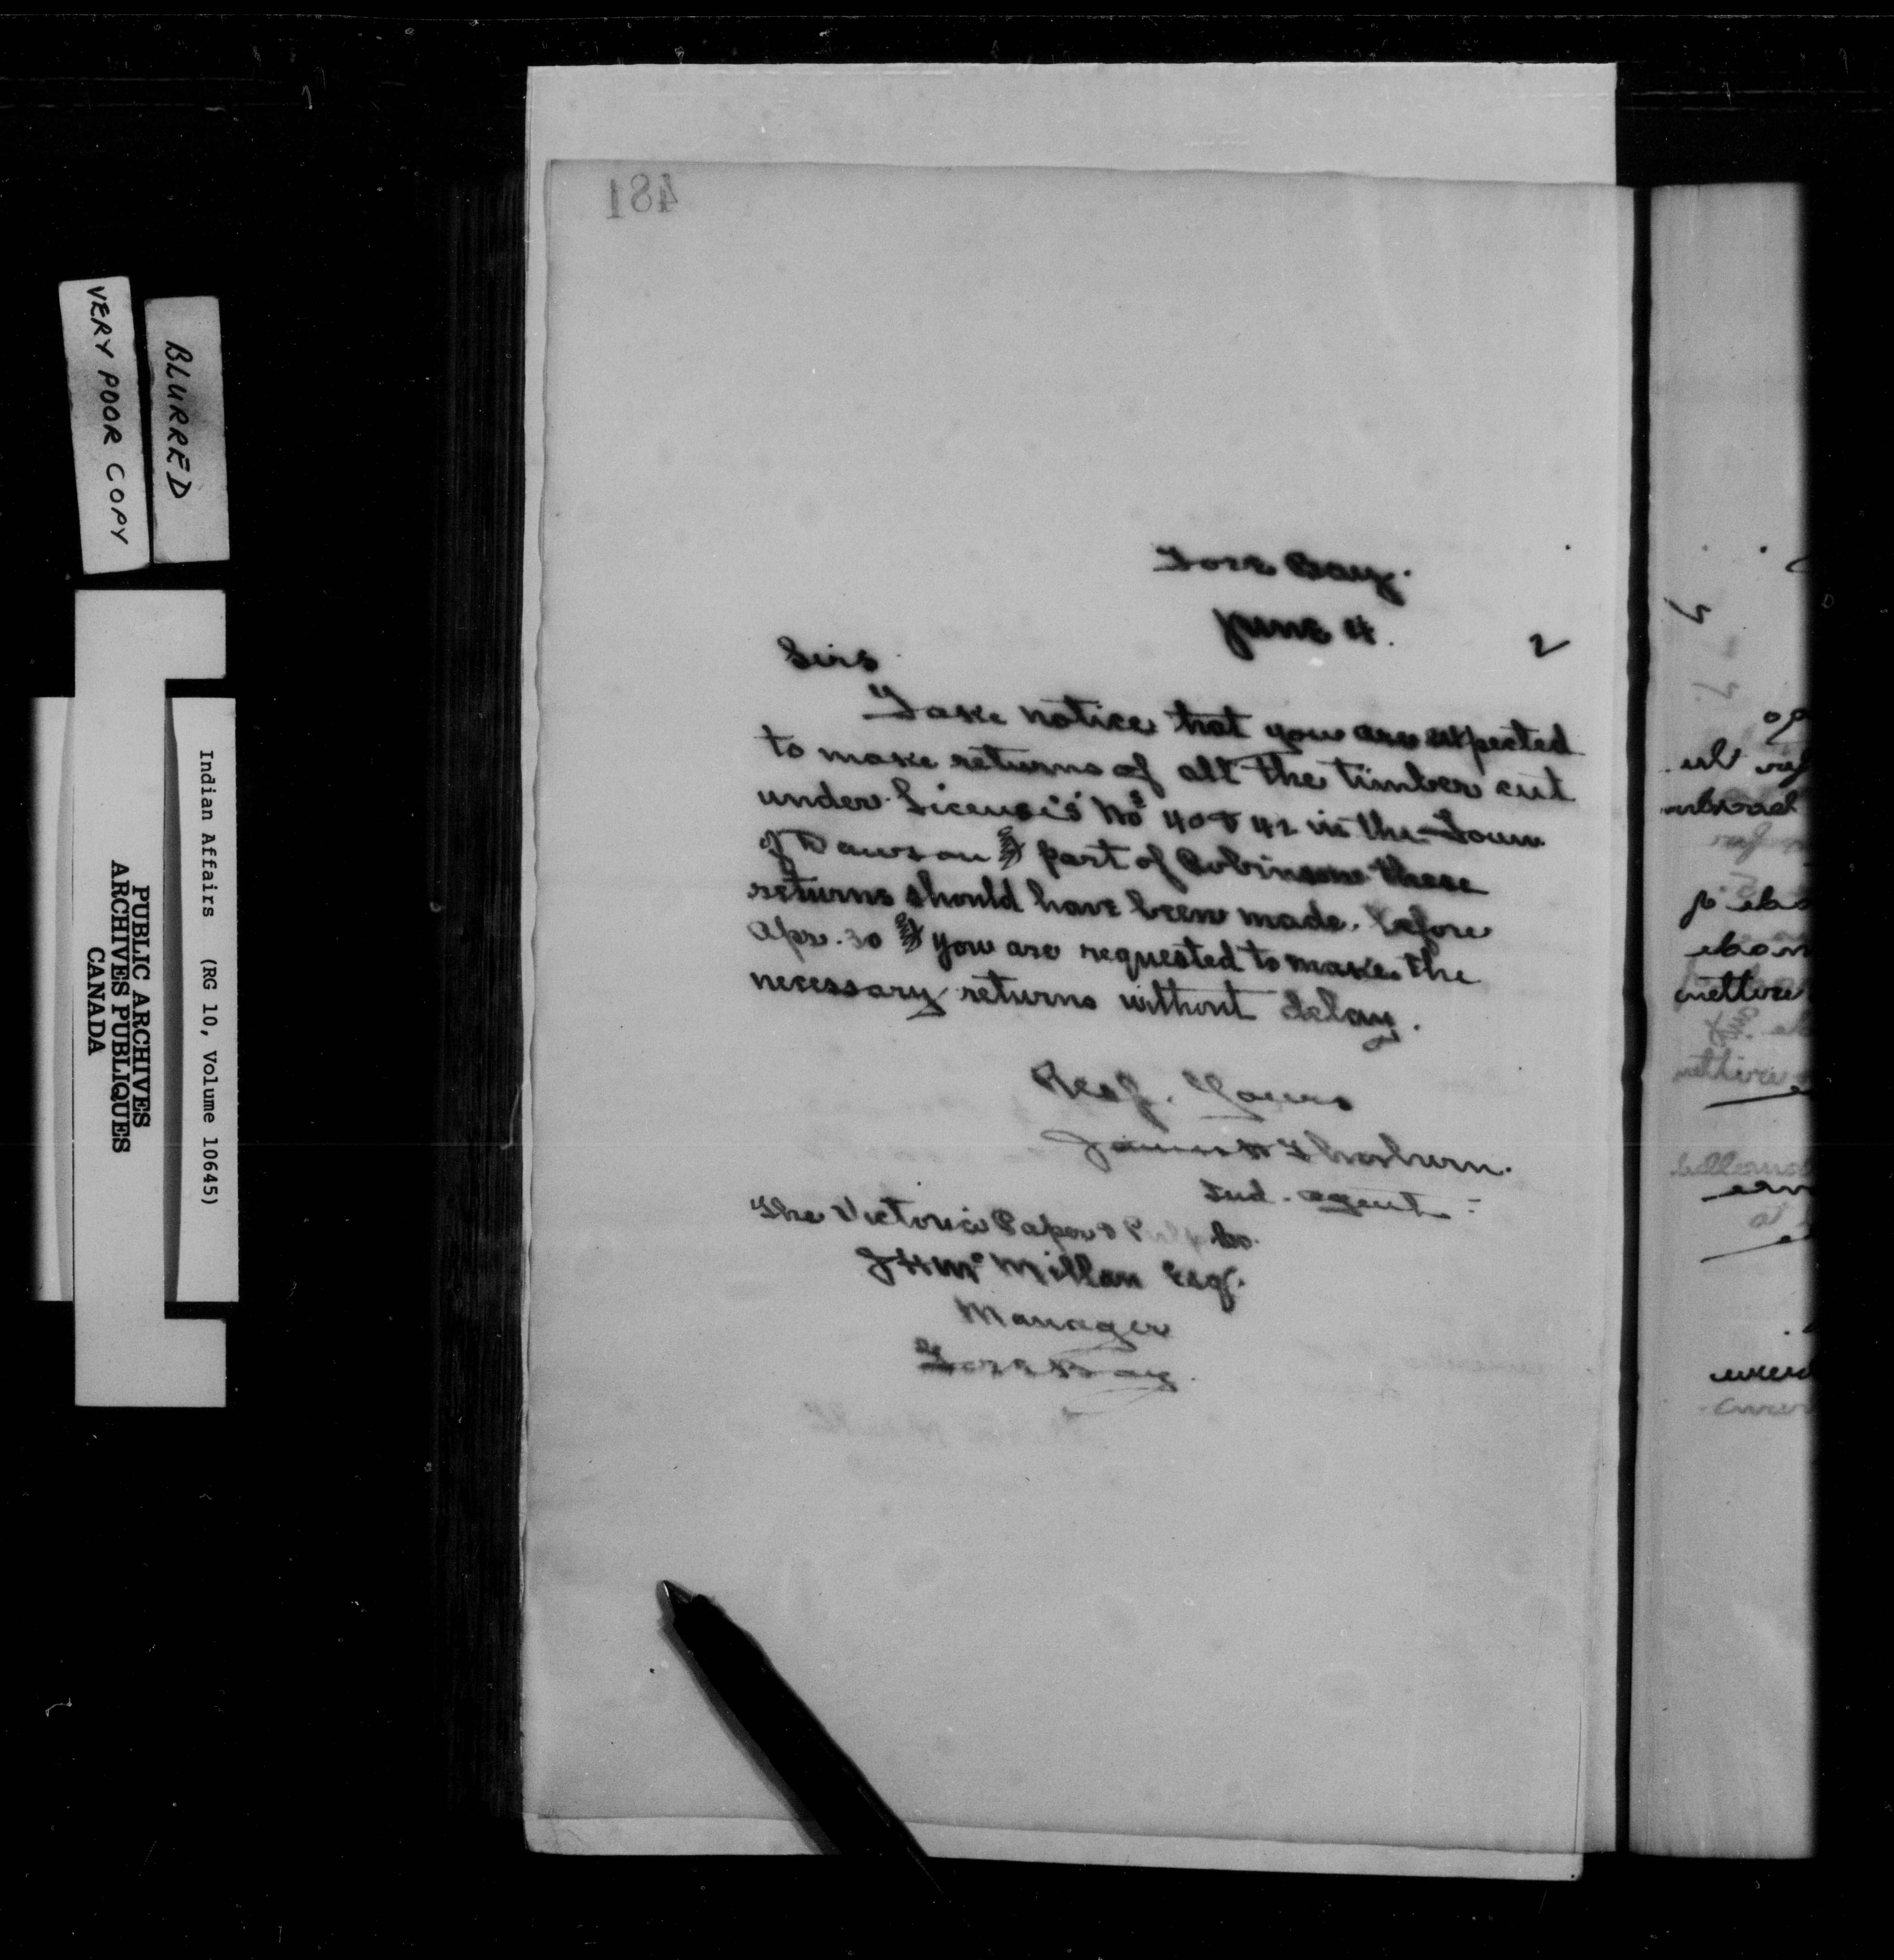 481
Gore Bay.
June 4. 2
Sirs
Take notice that you are expected
to make returns of all the timber cut
under License's Nos 40 & 42 in the Town
of Dawson & part of Robinson these
returns should have been made before
Apr. 30 & you are requested to make the
necessary returns without delay.
Resp. Yours
James H Thorburn.
Ind. agent
The Victoria Paper & Pulp Co.
J H Mc Millan Esq.
Manager
Gore Bay.
BLURRED
VERY POOR COPY
Indian Affairs (RG 10, Volume 10645)
PUBLIC ARCHIVES
ARCHIVES PUBLIQUES
CANADA